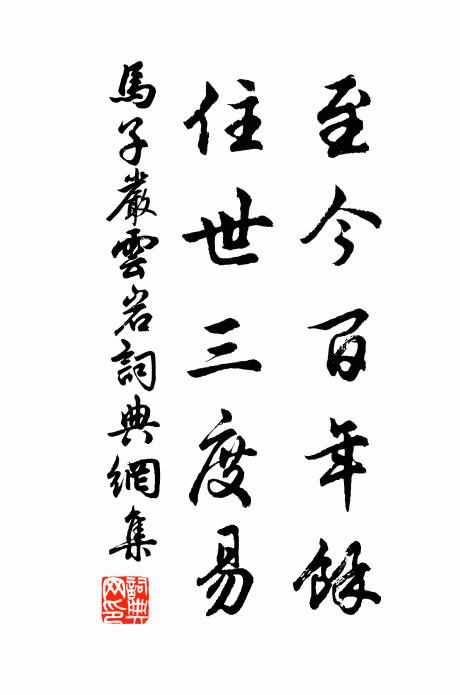 至今百年餘
住世三度易
馬子嚴雲岩詞典網集
詞典网印